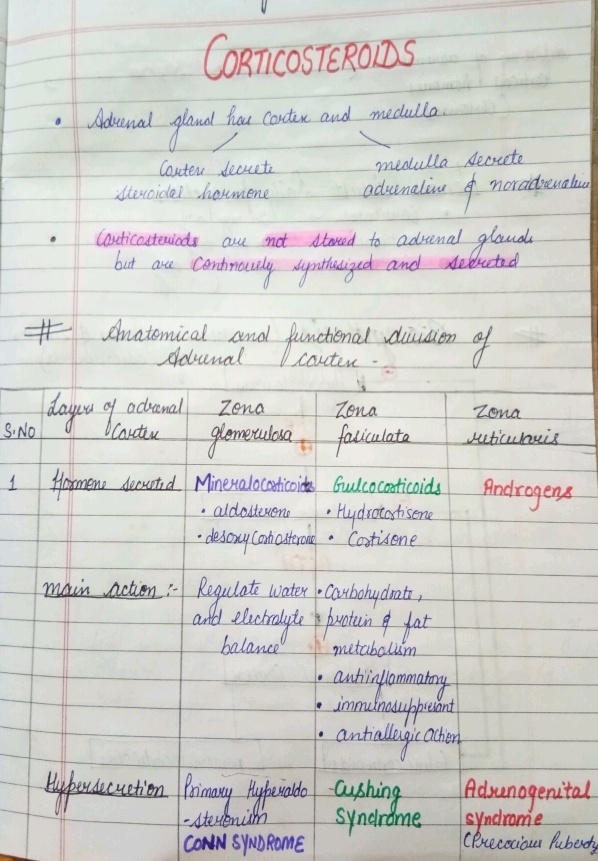 CORTICOSTEROIDS
• Adrenal gland has Cortex and medulla.
Cortex secrete
steroidal hormone
medulla secrete
adrenaline & noradrenaline
• Corticosteriods are not stored to adrenal glands
but are continously synthesized and secreted
# Anatomical and functional division of
Adrenal cortex -
S.NO
Layers of adrenal
Cortex
Zona
glomerulosa
Zona
fasiculata
Zona
reticularis
1
Hormone secreted
Mineralocorticoids
• aldosterone
• desoxycorticosterone
Gulcocorticoids
• Hydrocortisone
• Cortisone
Androgens
main action :-
Regulate water
and electrolyte
balance
• Carbohydrate,
protein & fat
metabolism
• antiinflammatory
• immunosuppresant
• antiallergic action
Hypersecretion
Primary Hyperaldo
-steronium
CONN SYNDROME
Cushing
Syndrome
Adrenogenital
syndrome
(Precocious Puberty